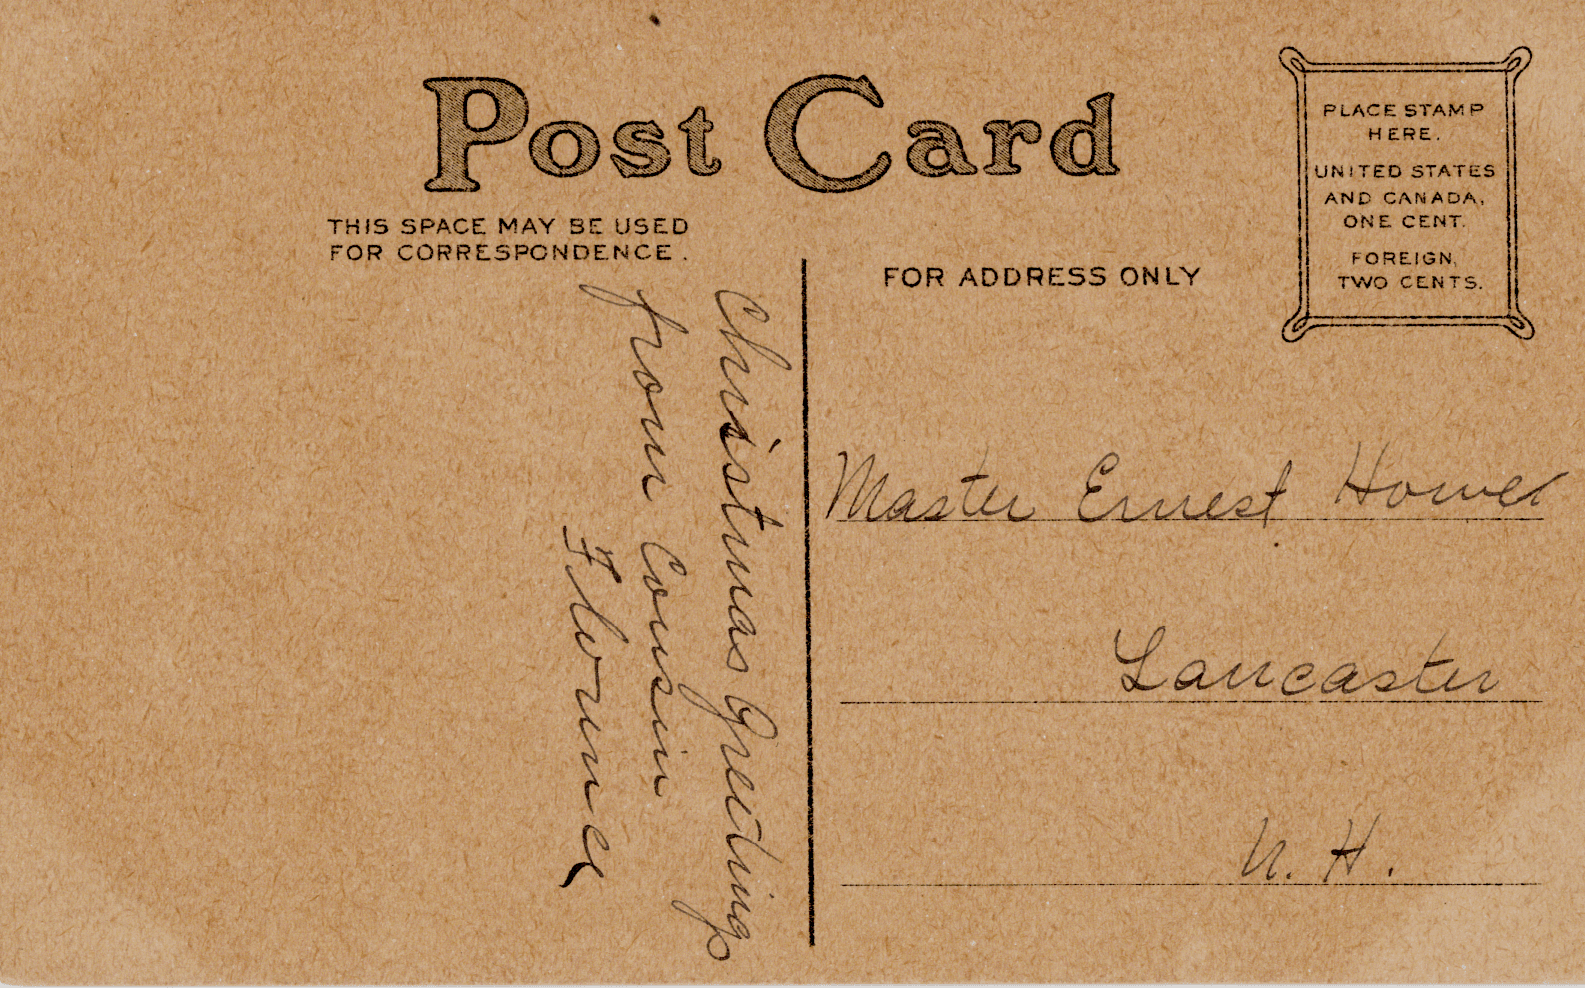 Post Card
THIS SPACE MAY BE USED
FOR CORRESPONDENCE.
FOR ADDRESS ONLY
PLACE STAMP
HERE.
UNITED STATES
AND CANADA,
ONE CENT.
FOREIGN,
TWO CENTS.
Christmas Greetings
from Cousin
Florence
Master Ernest Howe
Lancaster
N. H.